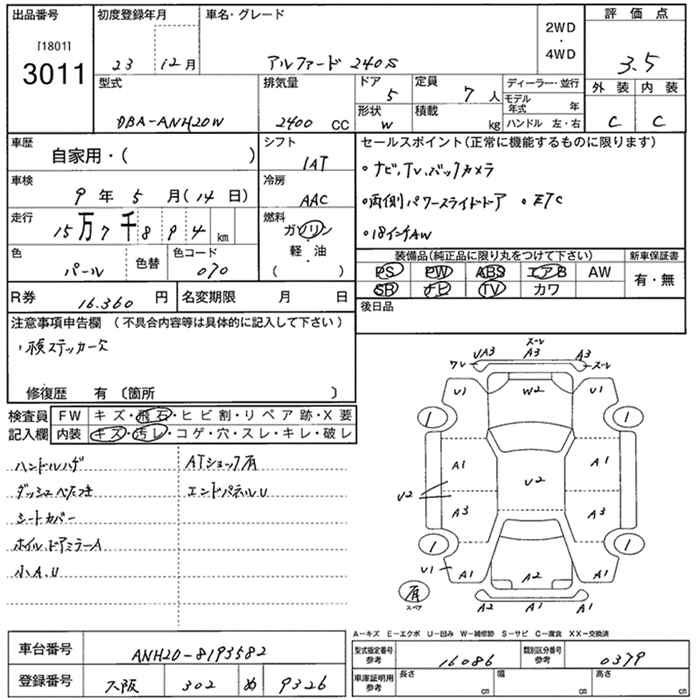 出品番号
[1801]
3011
初度登録年月
23 12月
車名・グレード
アルファード 240S
2WD
・
4WD
評価点
3.5
外装 内装
C C
型式
DBA-ANH20W
排気量
2400 CC
ドア
5
形状
W
定員
7 人
積載
kg
ディーラー・並行
モデル年式 年
ハンドル 左・右
車歴
自家用・( )
車検
9 年 5 月(14 日)
走行
15万7千894 km
色
パール
色替
色コード
070
シフト
IAT
冷房
AAC
燃料
ガソリン
軽・油
( )
セールスポイント(正常に機能するものに限ります)
・ナビ,TV,バックカメラ
・両側パワースライドドア ・ETC
・18インチAW
装備品(純正品に限り丸をつけて下さい)
PS PW ABS エアB AW
SB ナビ TV カワ
新車保証書
有・無
R券 16.360 円
名変期限 月 日
後日品
注意事項申告欄 (不具合内容等は具体的に記入して下さい)
・検ステッカー欠
修復歴 有 〔箇所 〕
検査員
記入欄
FW キズ・飛石・ヒビ割・リペア跡・X要
内装 キズ・汚レ・コゲ・穴・スレ・キレ・破レ
ハンドルハゲ ATショック有
ダッシュベたつき エンドパネルU
シートカバー
ホイル,ドアミラーA
小A.U
スレ
ワレ UA3 A3 A3 スレ
U1 W2 U1
1 1
A1 A1
U2 U2
A3 A3
1 1
U1 A1 A2 A1
有
スペア
A2 A1 A1
A-キズ E-エクボ U-凹み W-補修跡 S-サビ C-腐食 XX-交換済
車台番号 ANH20-8193582
登録番号 大阪 302 め 9326
型式指定番号
参考
16086
類別区分番号
参考
0379
車庫証明用
参考
長さ cm 幅 cm 高さ cm